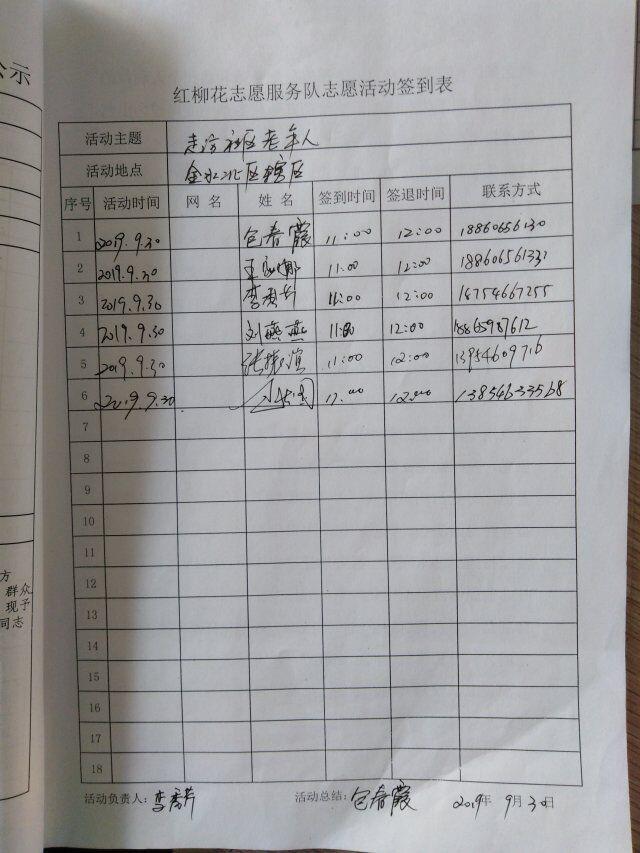 公示
红柳花志愿服务队志愿活动签到表
活动主题 走访社区老年人
活动地点 金水北区辖区
序号 活动时间 网 名 姓 名 签到时间 签退时间 联系方式
1 2019.9.30 包春霞 11:00 12:00 18860656130
2 2019.9.30 11:00 12:00
3 2019.9.30 李秀芹 11:00 12:00 18754667255
4 2019.9.30 刘燕燕 11:00 12:00
5 2019.9.30 11:00 12:00 13954609716
6 2019.9.30 12:00 13854633568
7
8
9
10
11
12
13
14
15
16
17
18
活动负责人: 李秀芹 活动总结: 包春霞 2019年 9月30日
方
群众
现予
同志